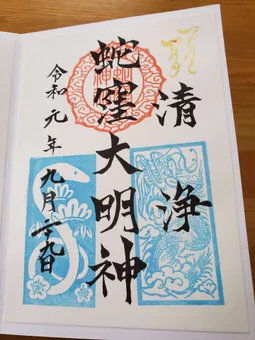 清浄
蛇窪大明神
令和元年九月二九日